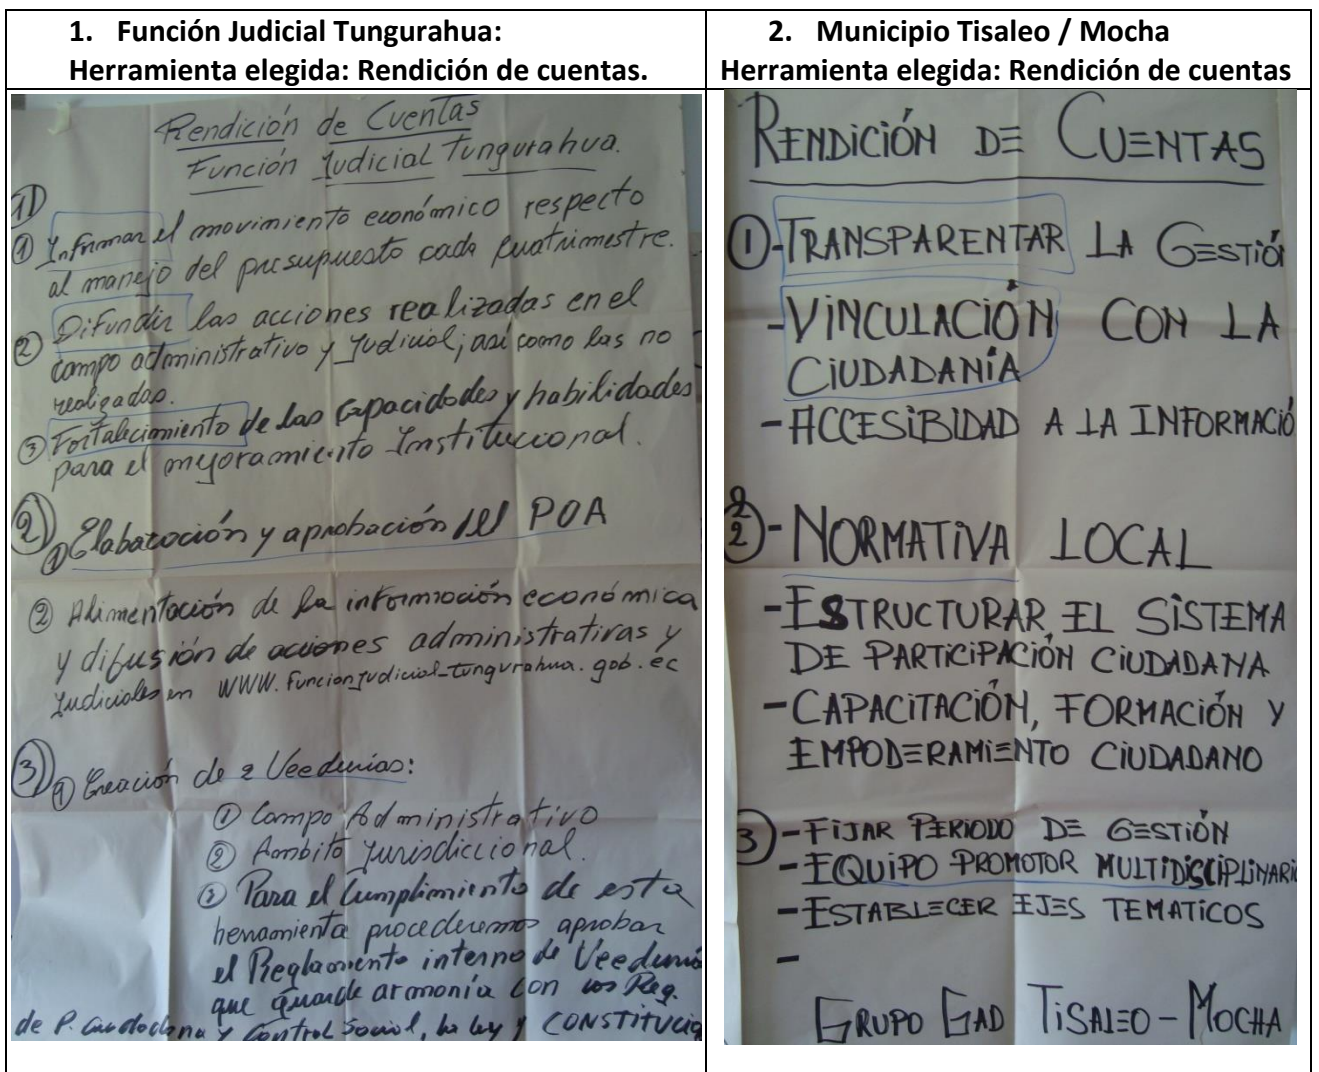 1. Función Judicial Tungurahua:
Herramienta elegida: Rendición de cuentas.
Rendición de Cuentas
Función Judicial Tungurahua.
1)
① Informar el movimiento económico respecto
al manejo del presupuesto cada cuatrimestre.
② Difundir las acciones realizadas en el
campo administrativo y Judicial; así como las no
realizadas.
③ Fortalecimiento de las capacidades y habilidades
para el mejoramiento Institucional.
2)
① Elaboración y aprobación del POA
② Alimentación de la información económica
y difusión de acciones administrativas y
Judiciales en WWW.funcionjudicial-tungurahua.gob.ec
3)
① Creación de 2 Veedurias:
① Campo Administrativo
② Ambito Jurisdiccional.
③ Para el Cumplimiento de esta
herramienta procederemos aprobar
el Reglamento interno de Veeduria
que guarde armonía con los Reg.
de P. Ciudadana y Control Social, la ley y CONSTITUCIO
2. Municipio Tisaleo / Mocha
Herramienta elegida: Rendición de cuentas
RENDICIÓN DE CUENTAS
① - TRANSPARENTAR LA GESTIÓN
- VINCULACIÓN CON LA
CIUDADANÍA
- ACCESIBIDAD A LA INFORMACIÓ
2
② - NORMATIVA LOCAL
- ESTRUCTURAR EL SISTEMA
DE PARTICIPACIÓN CIUDADANA
- CAPACITACIÓN, FORMACIÓN Y
EMPODERAMIENTO CIUDADANO
③ - FIJAR PERIODO DE GESTIÓN
- EQUIPO PROMOTOR MULTIDISCIPLINARI
- ESTABLECER EJES TEMATICOS
-
GRUPO GAD TISALEO - MOCHA